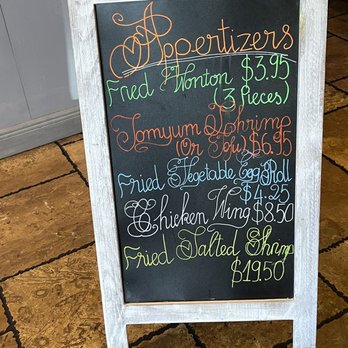 Appertizers
Fried Wonton $3.95
(3 Pieces)
Tomyum Shrimp
(Or Tofu) $6.95
Fried Vegetable Egg Roll
$4.25
Chicken Wing $8.50
Fried Salted Shrimp
$19.50